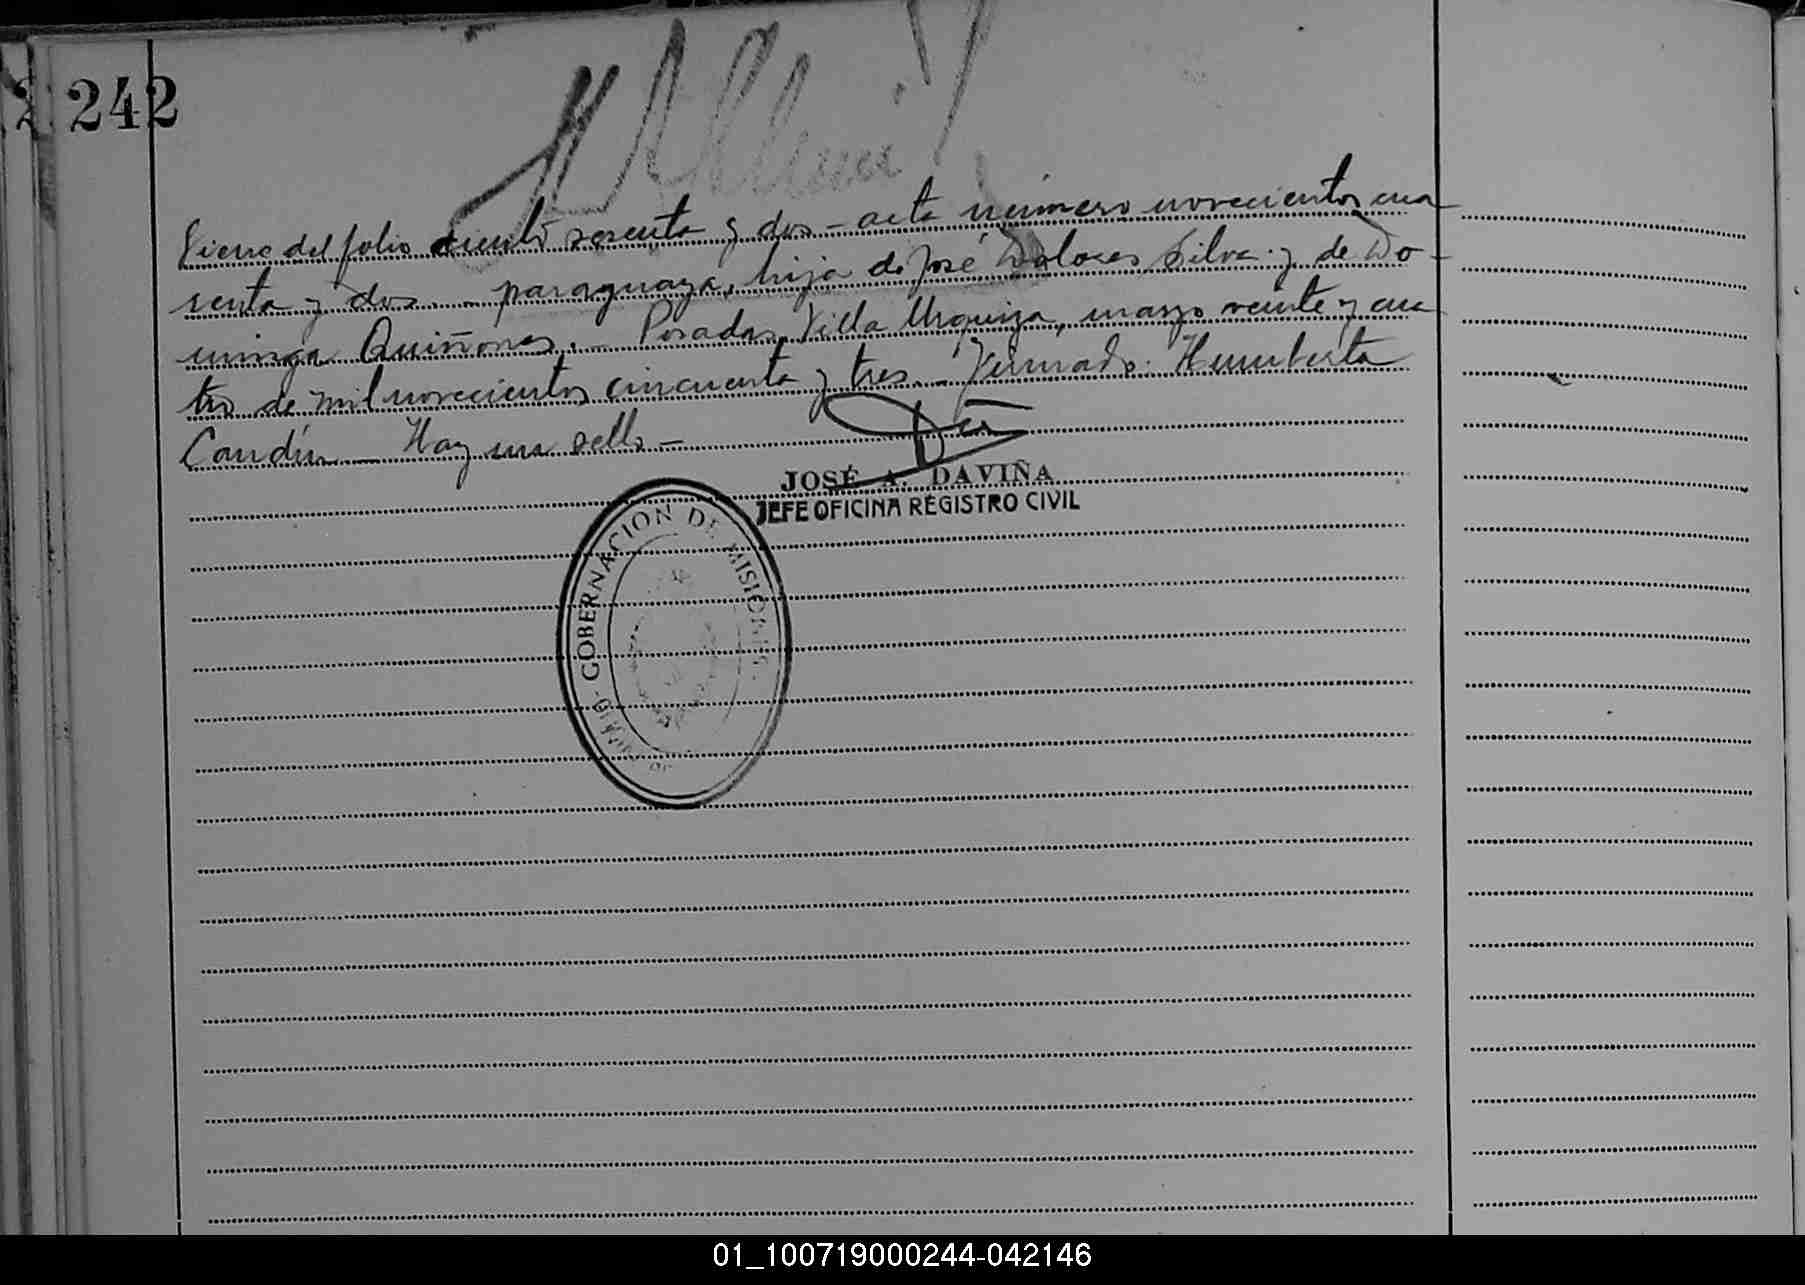 242
Viene del folio ciento sesenta y dos - acta número novecientos cua-
renta y dos. - paraguaya, hija de José Dolores Silva y de Do-
minga Quiñones. - Posadas, Villa Urquiza, marzo veinte y cua-
tro de mil novecientos cincuenta y tres. - Firmado: Humberto
Candín - Hay un sello -
JOSÉ A. DAVIÑA
JEFE OFICINA REGISTRO CIVIL
GOBERNACION DE MISIONES
01_100719000244-042146